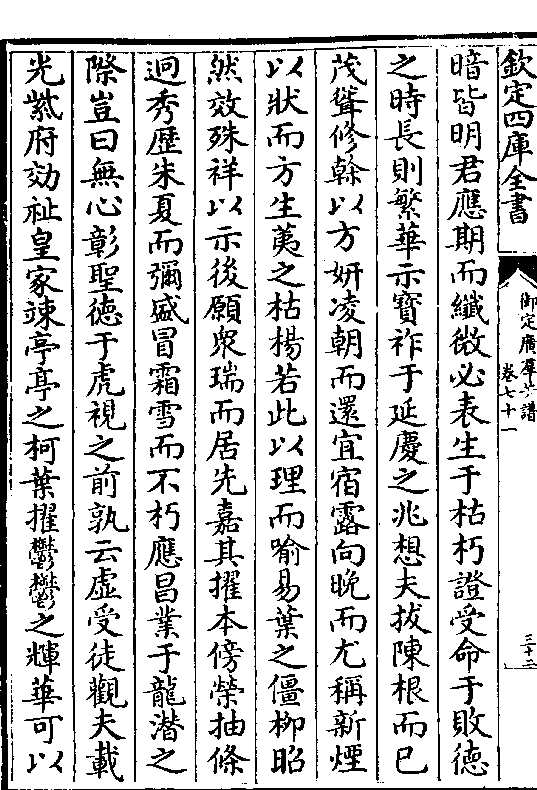 欽定四庫全書
御定廣羣芳譜
卷七十一
三十二
暗皆明君應期而纖微必表生于枯朽證受命于敗德
之時長則繁華示寶祚于延慶之兆想夫拔陳根而已
茂聳修幹以方妍凌朝而還宜宿露向晚而尤稱新煙
以狀而方生荑之枯楊若此以理而喻易葉之僵柳昭
然效殊祥以示後願衆瑞而居先嘉其擢本傍榮抽條
迥秀歴朱夏而彌盛冒霜雪而不朽應昌業于龍潛之
際豈曰無心彰聖德于虎視之前孰云虛受徒觀夫載
光紫府効祉皇家竦亭亭之柯葉擢鬱鬱之輝華可以